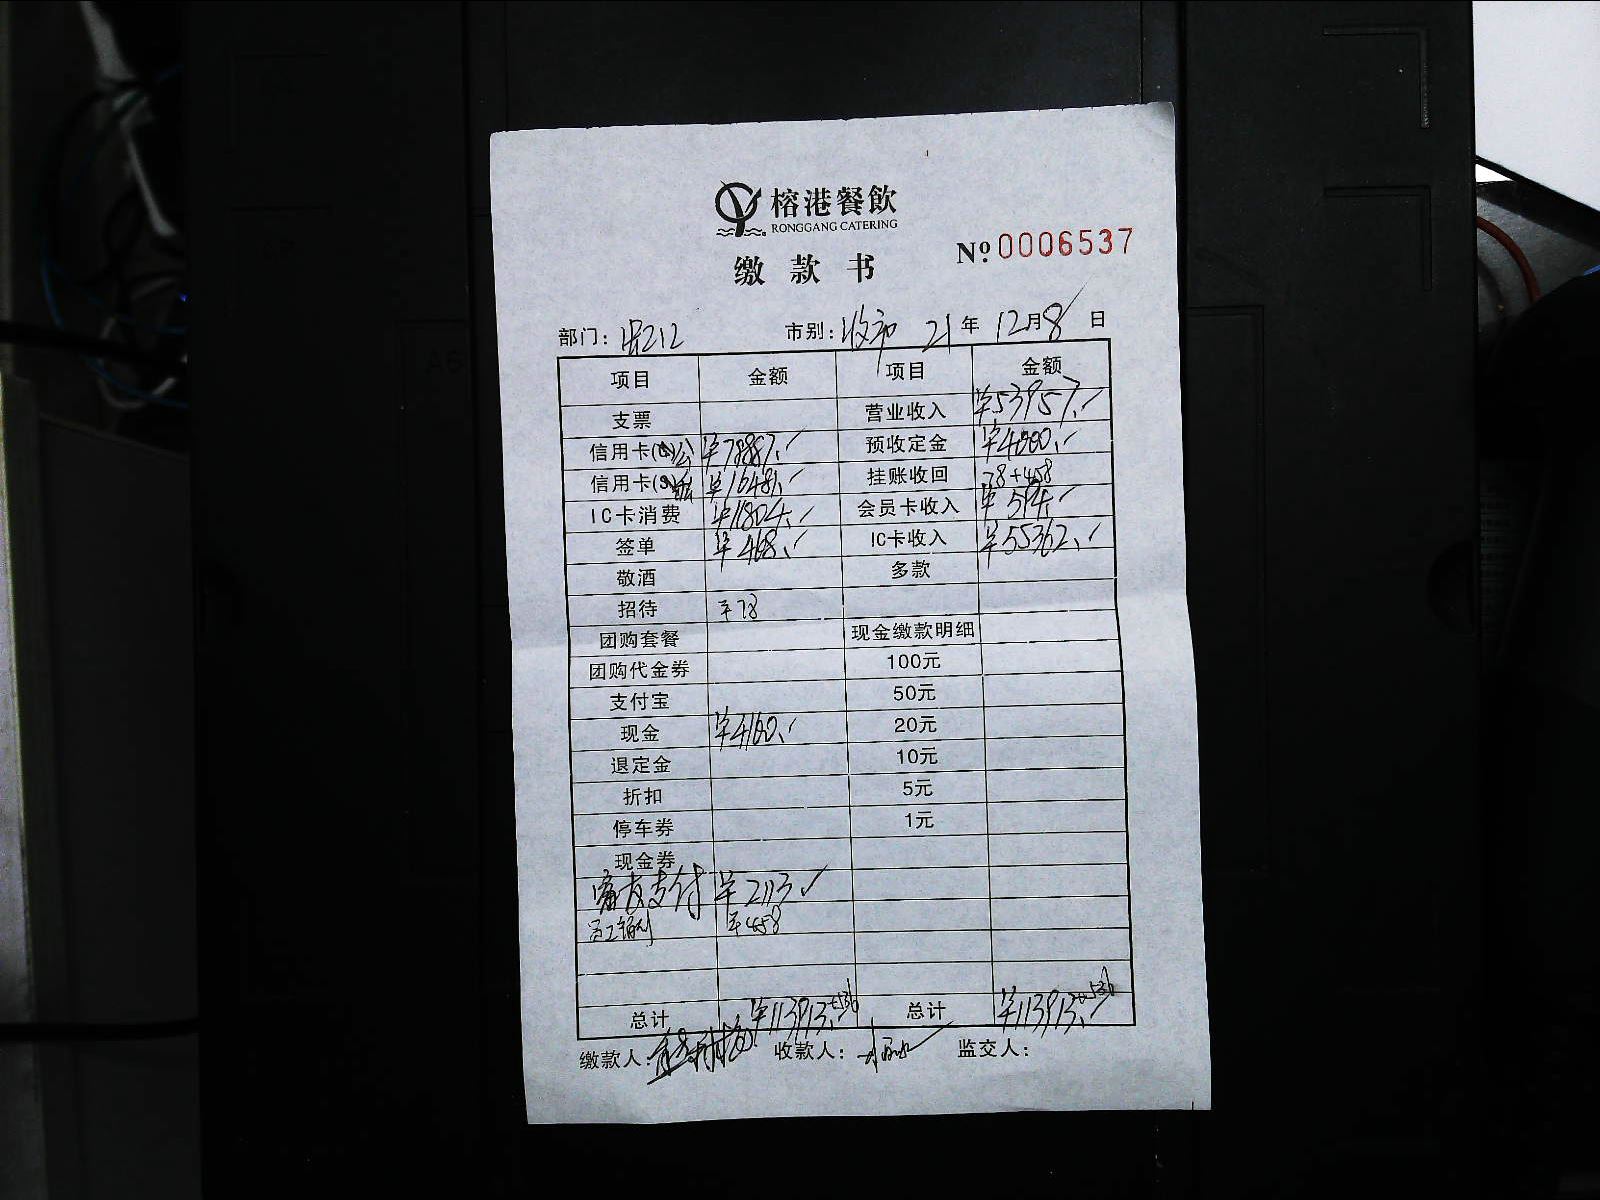 榕港餐飲
RONGGANG CATERING
缴款书
№ 0006537
部门: 212 市别: 收市 21年12月8日
项目 金额 项目 金额
支票 营业收入 ¥53957.
信用卡( )公 ¥78887. 预收定金 ¥4000.
信用卡( ) ¥16481. 挂账收回 78+458
IC卡消费 ¥11804. 会员卡收入 ¥594.
签单 ¥468. IC卡收入 ¥55362.
敬酒 多款
招待 ¥78
团购套餐 现金缴款明细
团购代金券 100元
支付宝 50元
现金 ¥4160. 20元
退定金 10元
折扣 5元
停车券 1元
现金券
支付 ¥2113.
员工福利 ¥458
总计 ¥113913.+536 总计 ¥113913.+536
缴款人: 收款人: 监交人: